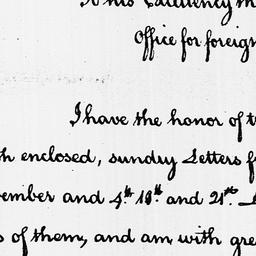 To his Excellency
Office for foreign
I have the honor of
enclosed, sundry Letters
and 4th 18th and 21st
of them, and am with